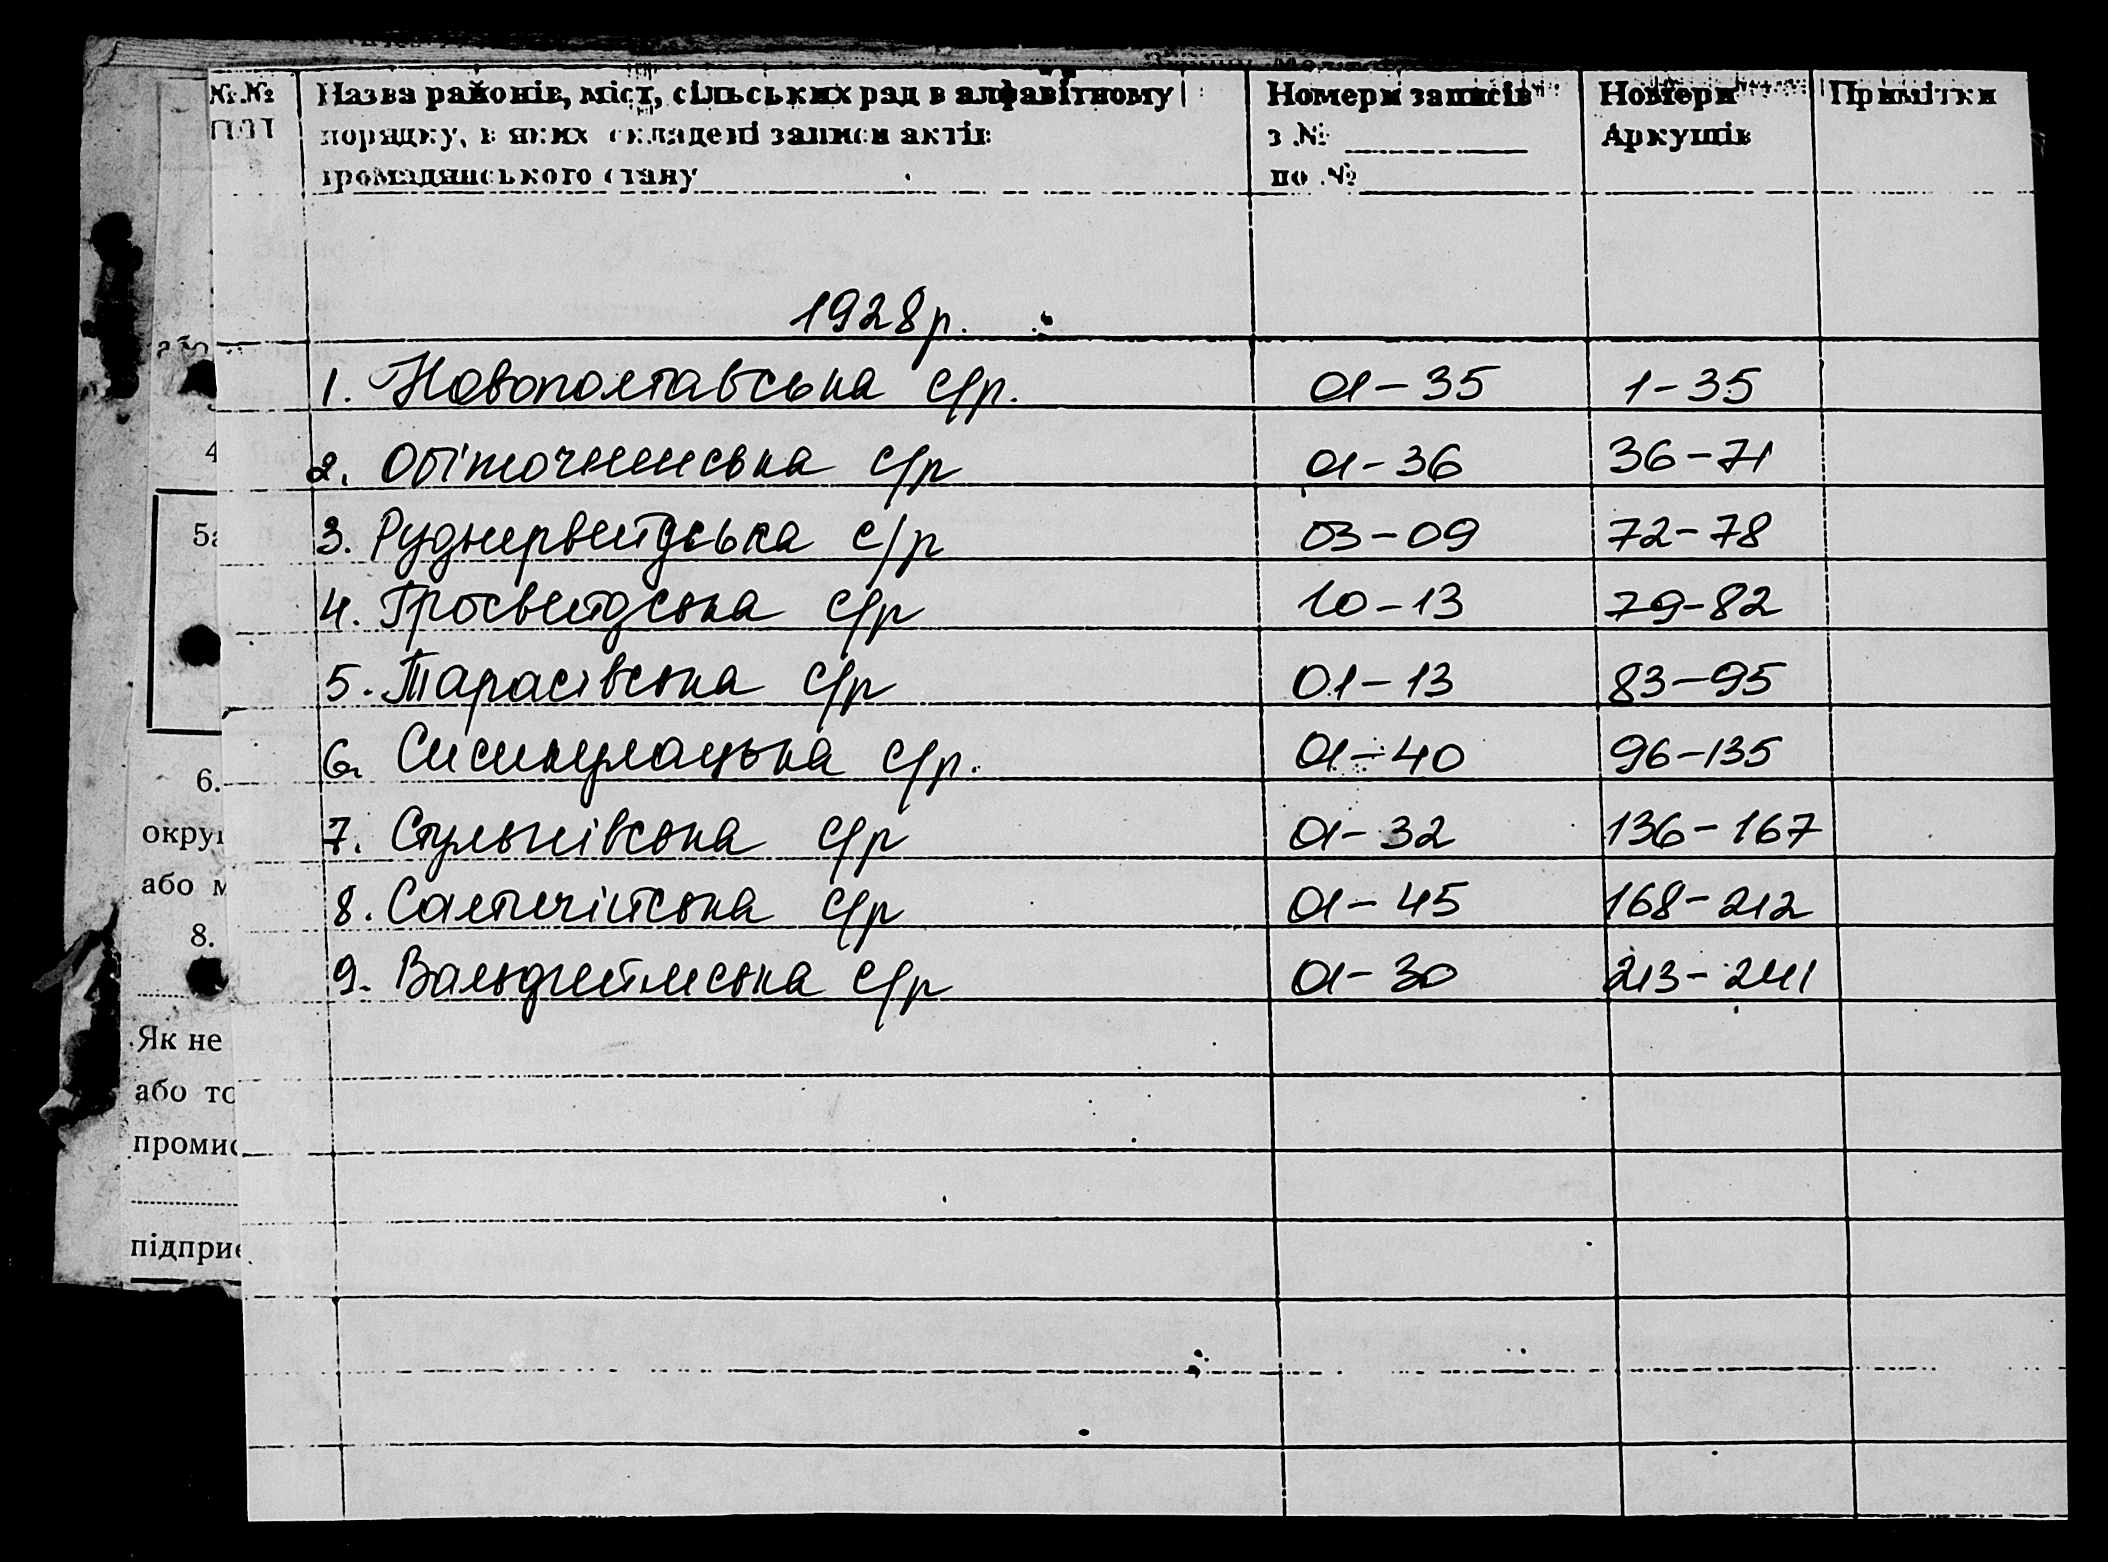 №.№ Назва районів, міст, сільських рад в алфавітному Номери записів Номери Примітки
П/П порядку, в яких складені записи актів з № Аркушів
громадянського стану по №
1928р.
1. Новополтавська с/р. 01-35 1-35
2. Обіточненська с/р 01-36 36-71
3. Руднервейдська с/р 03-09 72-78
4. Гросвейдська с/р 10-13 79-82
5. Тарасівська с/р 01-13 83-95
6. с/р. 01-40 96-135
7. Стульнівська с/р 01-32 136-167
8. Салтичійська с/р 01-45 168-212
9. Вальдгеймська с/р 01-30 213-241
4
5а
6.
окру
або м
8.
Як не
або то
промис
підприє